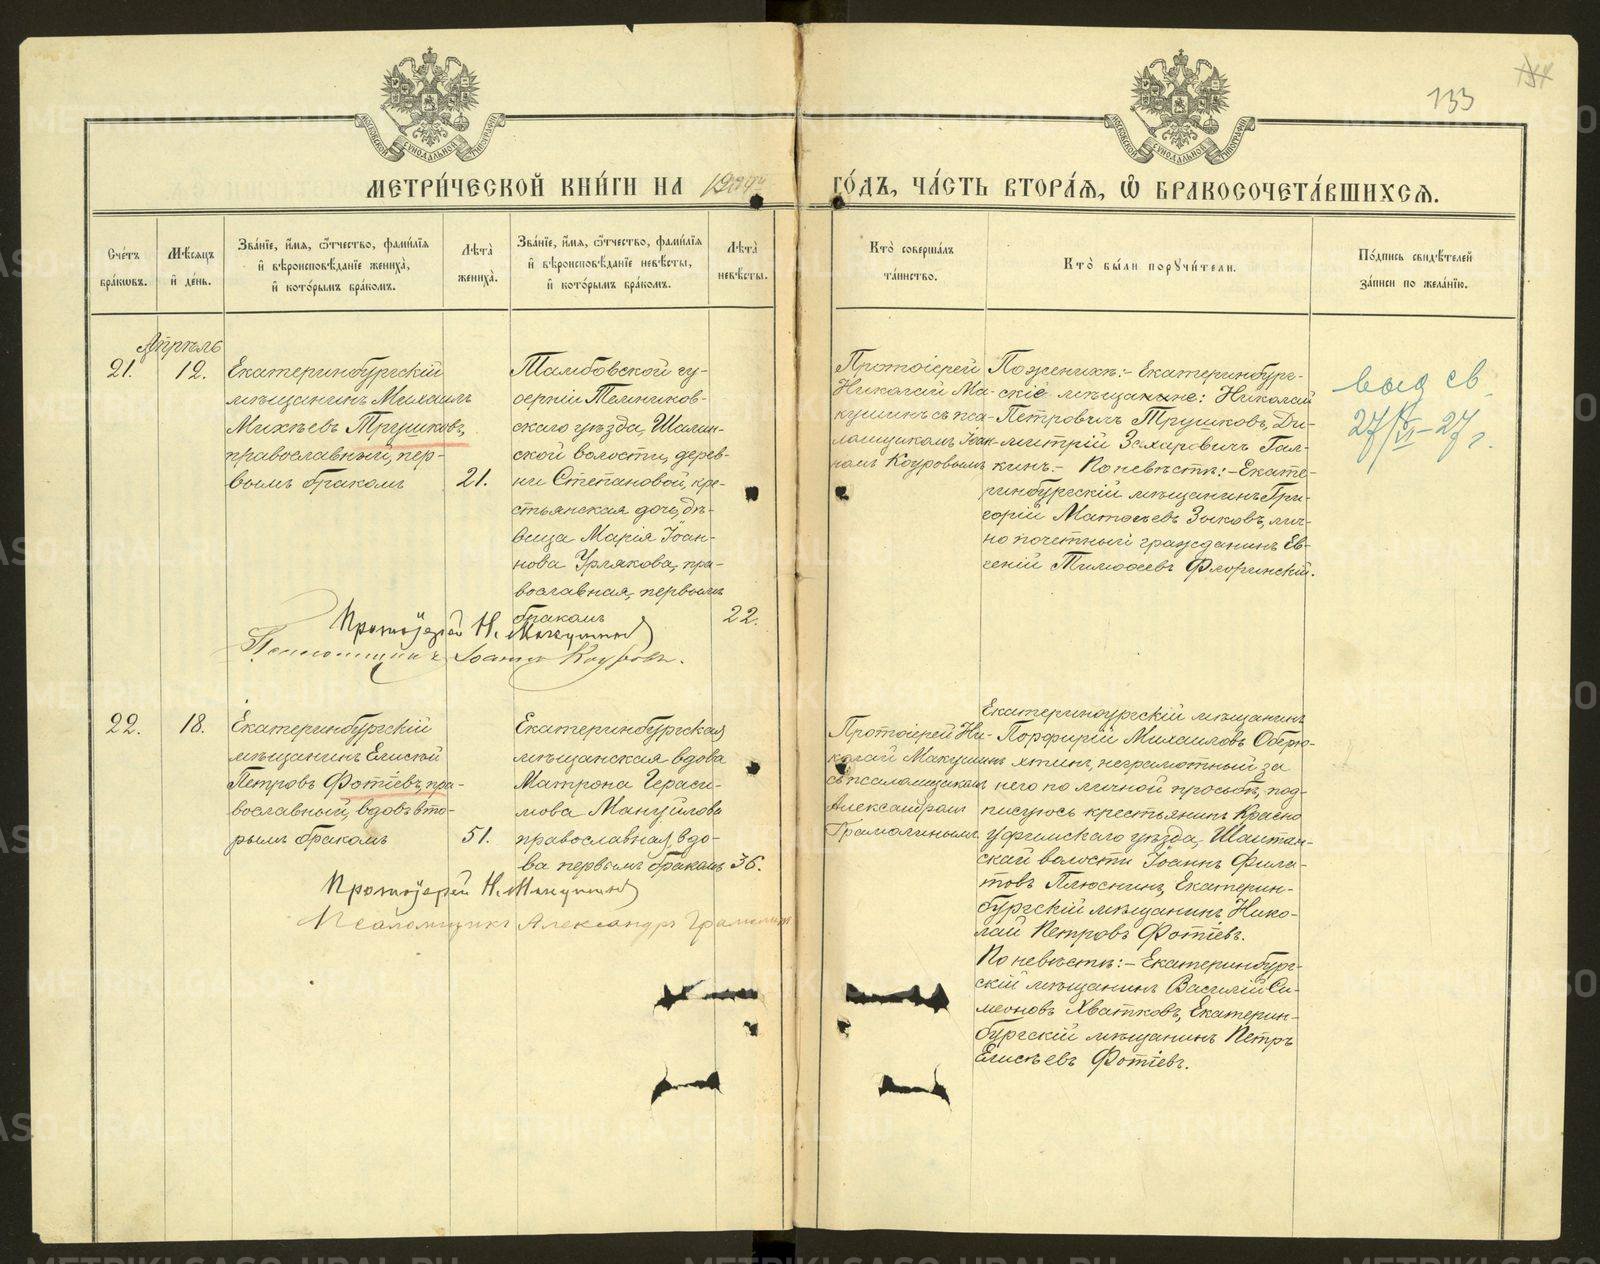 133
МЕТРИ́ЧЕСКОЙ КНИ́ГИ НА
ГО́ДЪ, ЧА́СТЬ ВТОРА́Я, Ѿ БРАКОСОЧЕТА́ВШИХСЯ.
МОСКОВСКОЙ СѴНОДАЛЬНОЙ ТИПОГРАФІИ
МОСКОВСКОЙ СѴНОДАЛЬНОЙ ТИПОГРАФІИ
Сче́тъ
бра́кѡвъ.
Мѣ́сяцъ
и҆ де́нь.
Зва́нїе, и҆́мя, ѻ҆́тчество, фами́лїя
и҆ вѣроисповѣ́данїе жениха̀,
и҆ кото́рымъ бра́комъ.
Лѣ́та
жениха̀.
Зва́нїе, и҆́мя, ѻ҆́тчество, фами́лїя
и҆ вѣроисповѣ́данїе невѣ́сты,
и҆ кото́рымъ бра́комъ.
Лѣ́та
невѣ́сты.
Кто̀ соверша́лъ
та́инство.
Кто̀ бы́ли порꙋчи́тели.
По́дпись свидѣ́телей
за́писи по жела́нїю.
Апрѣль
21.
12.
Екатеринбургскій
мѣщанинъ Михаилъ
Михѣевъ Трушковъ,
православный, пер-
вымъ бракомъ
21.
Тамбовской гу-
берніи Темников-
скаго уѣзда, Шалин-
ской волости, дерев-
ни Степановой, кре-
стьянская дочь, дѣ-
вица Марія Іоан-
нова Урлякова, пра-
вославная, первымъ
бракомъ
22.
Протоіерей
Николай Ма-
кушинъ съ пса-
ломщикомъ Іоан-
номъ Коуровымъ
По женихѣ:- Екатеринбург-
скіе мѣщане: Николай
Петровичъ Трушковъ, Ди-
митрій Захаровичъ Гал-
кинъ.- По невѣстѣ:- Екате-
ринбургскій мѣщанинъ Гри-
горій Матѳеевъ Зыковъ, лич-
но почетный гражданинъ Ев-
геній Тимоѳеевъ Флоринскій.
выд св.
Протоіерей Н. Макушинъ
Псаломщикъ Іоаннъ Коуровъ.
22.
18.
Екатеринбургскій
мѣщанинъ Елисей
Петровъ Фотіевъ, пра-
вославный, вдовъ вто-
рымъ бракомъ
51.
Екатеринбургская
мѣщанская вдова
Матрона Гераси-
мова Мануйлова
православная, вдо-
ва первымъ бракомъ
36.
Протоіерей Ни-
колай Макушинъ
съ псаломщикомъ
Александромъ
Грамолинымъ
Екатеринбургскій мѣщанинъ
Порфирій Михаиловъ Оберю-
хтинъ, неграмотный, за
него по личной просьбѣ, под-
писуюсь крестьянинъ Красно
уфимскаго уѣзда, Шайтан-
ской волости Іоаннъ Фила-
товъ Плюснинъ, Екатерин-
бургскій мѣщанинъ Нико-
лай Петровъ Фотіевъ.
По невѣстѣ:- Екатеринбург-
скій мѣщанинъ Василій Си-
меоновъ Хватковъ, Екатерин-
бургскій мѣщанинъ Петръ
Елисѣевъ Фотіевъ.
Протоіерей Н. Макушинъ
Псаломщикъ Александръ Грамолинъ